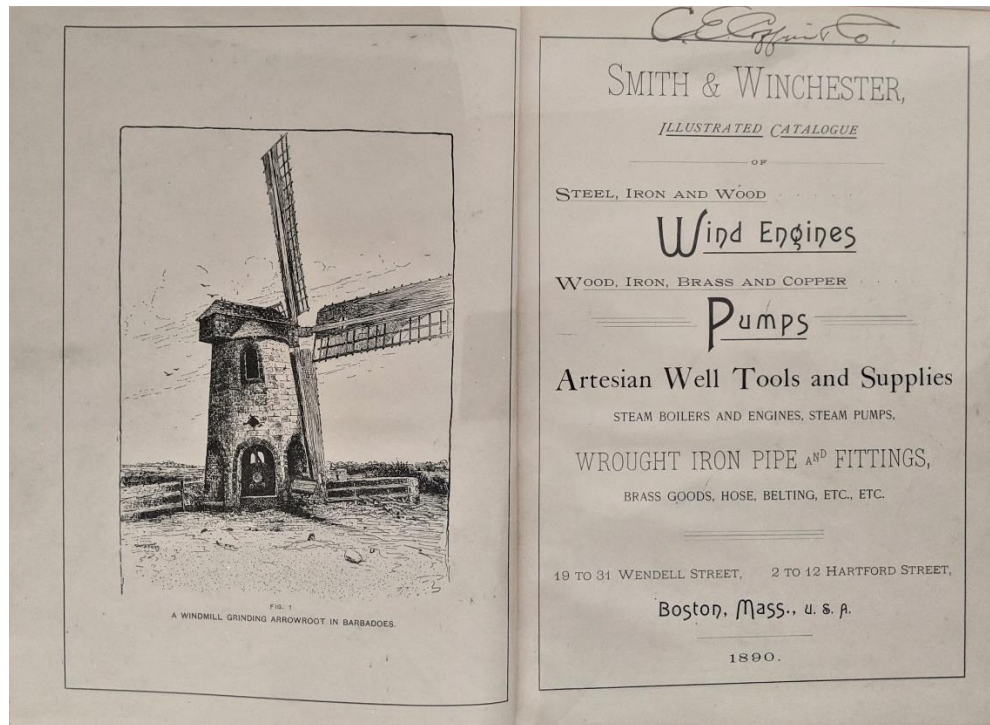 FIG. 1
A WINDMILL GRINDING ARROWROOT IN BARBADOES.
C. E. Coffin & Co.
SMITH & WINCHESTER,
ILLUSTRATED CATALOGUE
OF
STEEL, IRON AND WOOD
Wind Engines
WOOD, IRON, BRASS AND COPPER
Pumps
Artesian Well Tools and Supplies
STEAM BOILERS AND ENGINES, STEAM PUMPS,
WROUGHT IRON PIPE AND FITTINGS,
BRASS GOODS, HOSE, BELTING, ETC., ETC.
19 TO 31 WENDELL STREET, 2 TO 12 HARTFORD STREET,
Boston, Mass., U. S. A.
1890.